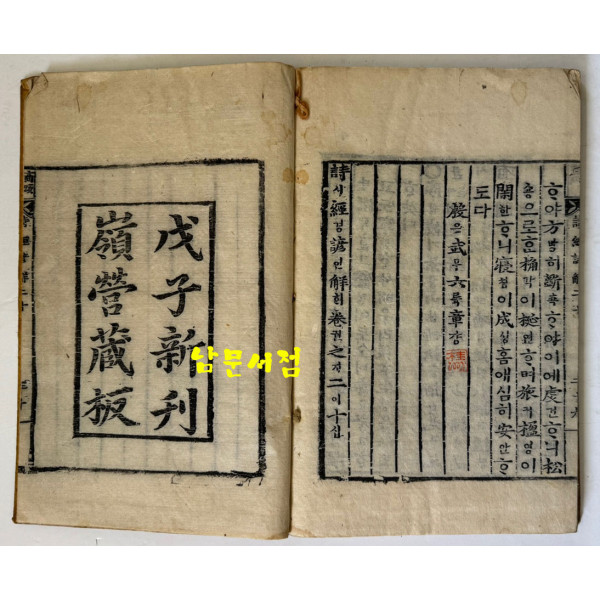 ᄒᆞ야方방히斲착ᄒᆞ야이에虔건ᄒᆞ니松
숑으로ᄒᆞᆫ桷각이梴연ᄒᆞ며旅려楹영이
閑한ᄒᆞ니寢침이成셩홈애심히安안ᄒᆞ
도다
殷은武무六륙章쟝
詩시經경諺언解ᄒᆡ卷권之지二이十십
戊子新刊
嶺營藏板
남문서점